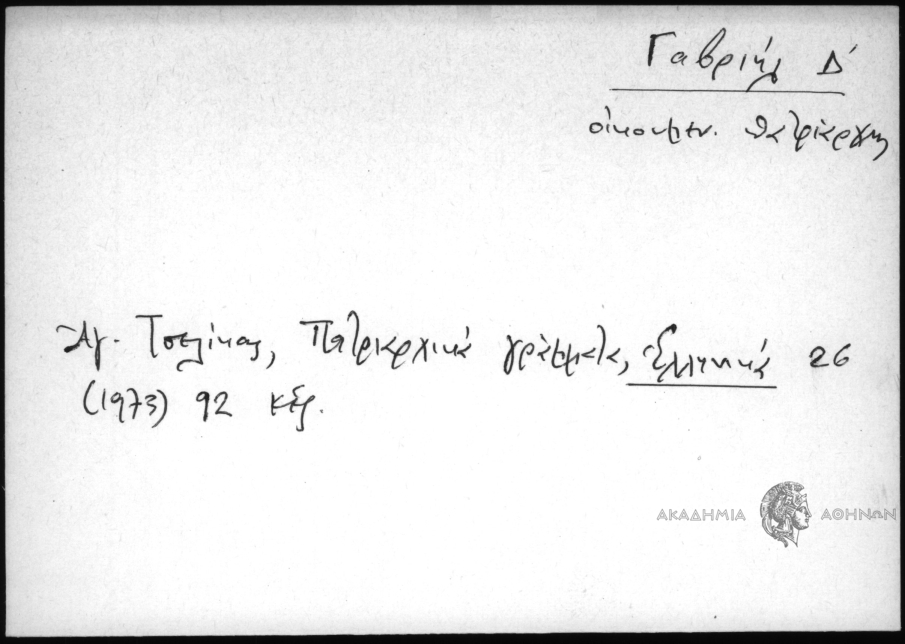 Γαβριήλ Δ´
οἰκουμεν. πατριάρχης
Ἀγ. Τσελίκας, Πατριαρχικά γράμματα, Ἑλληνικά 26
(1973) 92 κἑξ.
ΑΚΑΔΗΜΙΑ ΑΘΗΝΩΝ